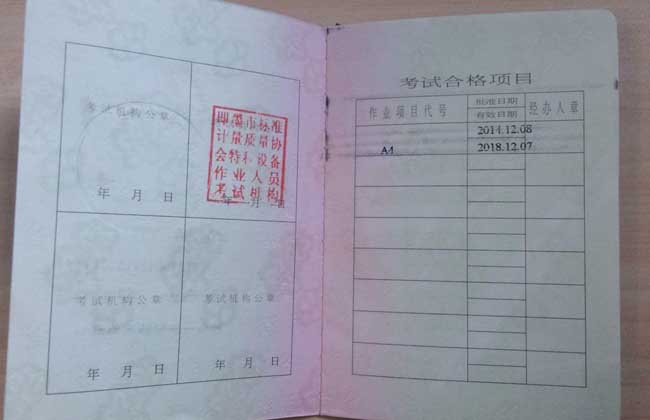 考试机构公章
年 月 日
即墨市标准
计量质量协
会特种设备
作业人员
考试机构
年 月 日
考试机构公章
年 月 日
考试机构公章
年 月 日
考试合格项目
作业项目代号
批准日期
有效日期
经办人章
2014.12.08
A4
2018.12.07